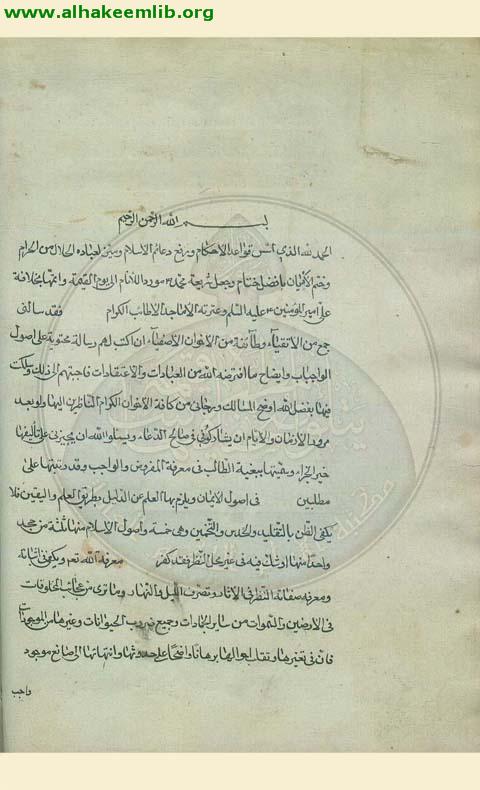 www.alhakeemlib.org
بسم الله الرحمن الرحيم
الحمد لله الذي اسس قواعد الاحكام ورفع دعائم الاسلام وبين لعباده الحلال من الحرام
وختم الاديان بافضل ختام وجعل شريعة محمد ص موردا للانام الى يوم القيمة واتمها بخلافة
علي امير المؤمنين عليه السلم وعترته الاماجد الاطائب الكرام فقد سالني
جمع من الاتقياء وطائفة من الاخوان الاصفياء ان اكتب لهم رسالة محتوية على اصول
الواجبات وايضاح ما افترضه الله من العبادات والاعتقادات فاجبتهم الى ذلك وسلكت
فيها بفضل الله اوضح المسالك ورجائي من كافة الاخوان الكرام الناظرين اليها ولو بعد
مرور الازمان والايام ان يشاركوني في صالح الدعاء ويسئلوا الله ان يجيزني على تاليفها
خير الجزاء وسميتها ببغية الطالب في معرفة المفروض والواجب وقد رتبتها على
مطلبين في اصول الايمان ويلزم بها العلم عن الدليل وبطريق العلم واليقين فلا
يكفي الظن بالتقليد والحدس والتخمين وهي خمسة واصول الاسلام منها ثلثة من جحد
واحدا منها او شك فيه في غير محل النظر فقد كفر معرفة الله تعم ويكفي في اثباته
ومعرفة صفاته النظر في الاثار وتصرف الليل والنهار وما ترى من عجائب المخلوقات
في الارضين والسموات من ساير الجمادات وجميع ضروب الحيوانات وغيرها من الموجودات
فان في تغيرها وتقلب احوالها برهانا واضحا على حدوثها وانتهائها الى صانع موجود
واجب